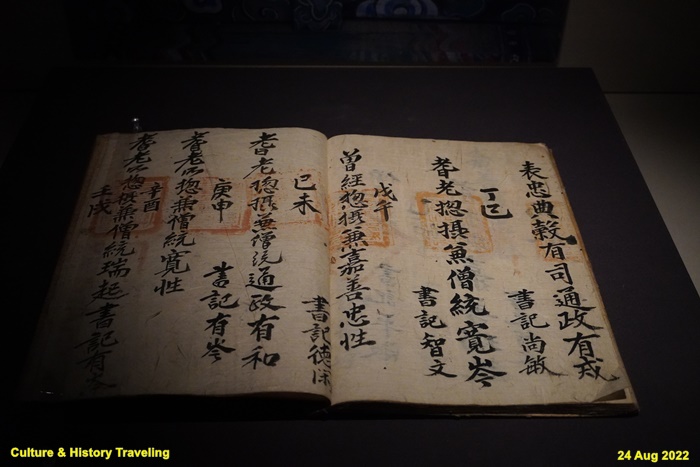 表忠典穀有司通政有戎
書記尚敏
丁巳
耆老揔攝兼僧統寬岑
書記智文
戊午
曽經揔攝兼嘉善忠性
書記德
己未
耆老揔攝兼僧統通政有和
庚申
書記有岑
耆老所揔兼僧統寬性
辛酉
耆老所揔兼僧統瑞起書記有
壬戌
Culture & History Traveling
24 Aug 2022